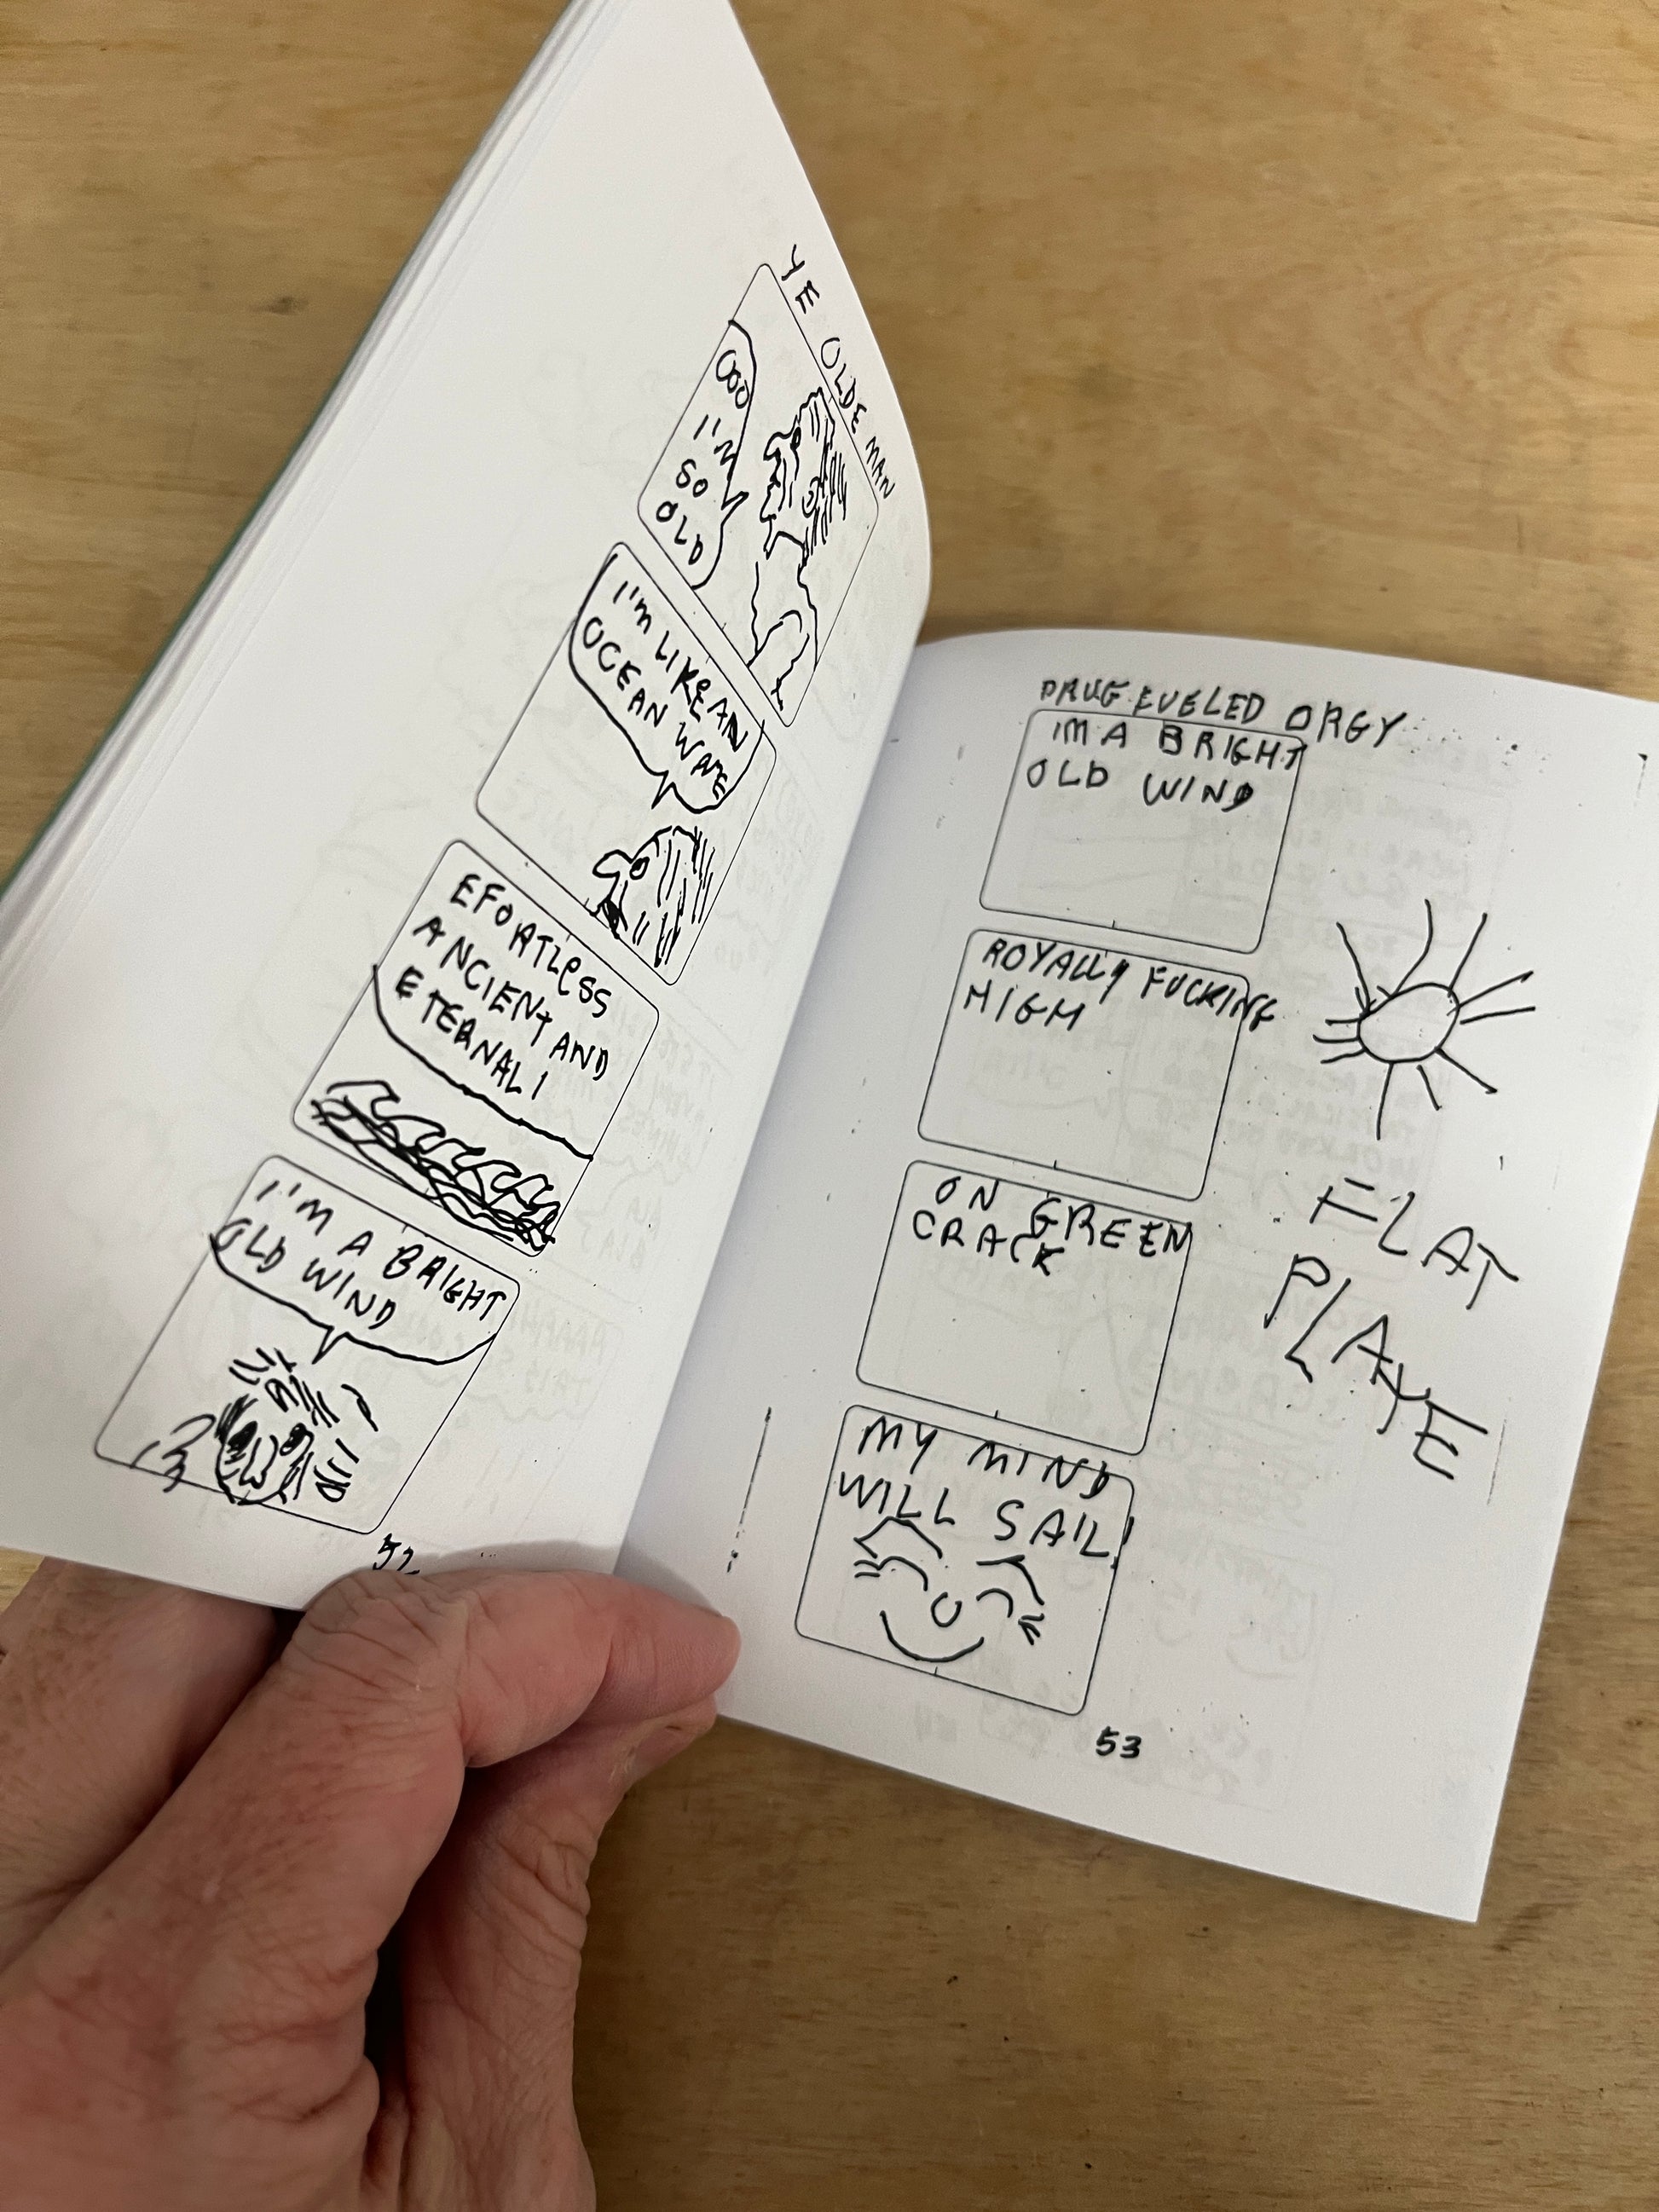 YE OLDE MAN
OOO
I'M
SO
OLD
I'm LIKE AN
OCEAN WAVE
EFORTLESS
ANCIENT AND
ETERNAL!
I'M A BRIGHT
OLD WIND
52
DRUG FUELED ORGY
IM A BRIGHT
OLD WIND
ROYALLY FUCKING
HIGH
ON GREEN
CRACK
MY MIND
WILL SAIL!
53
FLAT
PLAYE